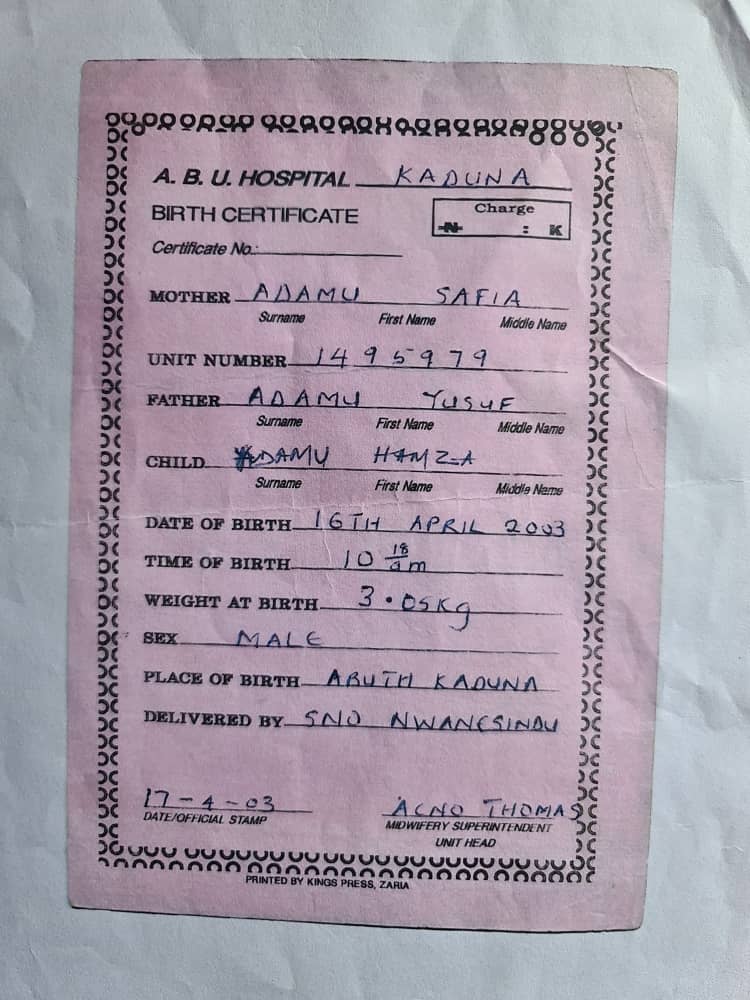 A. B. U. HOSPITAL KADUNA
BIRTH CERTIFICATE
Charge
₦ : K
Certificate No.:
MOTHER ADAMU SAFIA
Surname First Name Middle Name
UNIT NUMBER 1495979
FATHER ADAMU YUSUF
Surname First Name Middle Name
CHILD ADAMU HAMZA
Surname First Name Middle Name
DATE OF BIRTH 16TH APRIL 2003
TIME OF BIRTH 10 18 am
WEIGHT AT BIRTH 3.05Kg
SEX MALE
PLACE OF BIRTH ABUTH KADUNA
DELIVERED BY SNO
17-4-03 ACNO THOMAS
DATE/OFFICIAL STAMP MIDWIFERY SUPERINTENDENT
UNIT HEAD
PRINTED BY KINGS PRESS, ZARIA